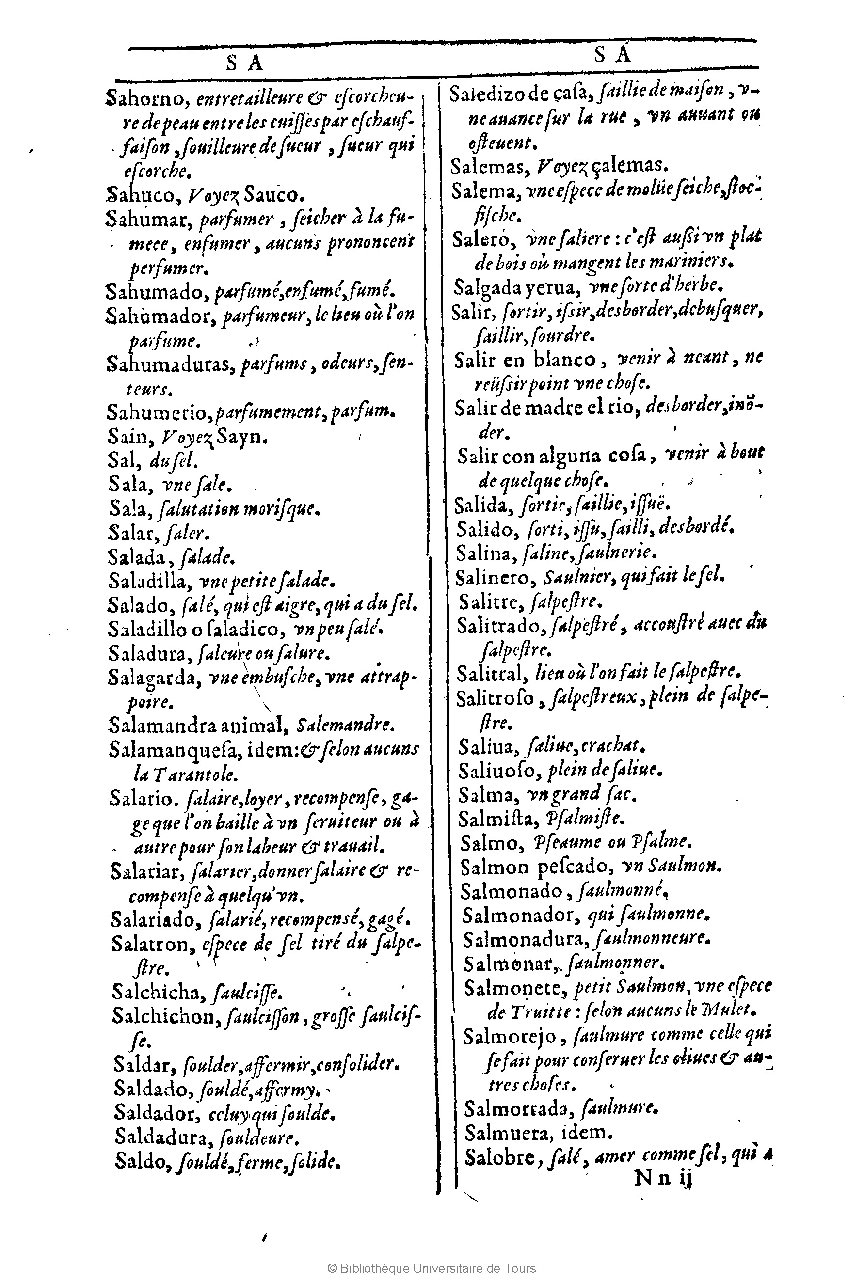 S A
Sahorno, entretailleure & eſcorcheu-
re de peau entre les cuiſſes par eſchauf-
faiſon, ſouilleure de ſueur, ſueur qui
eſcorche.
Sahuco, Voyez Sauco.
Sahumar, parfumer, ſeicher à la fu-
mece, enfumer, aucuns prononcent
perfumer.
Sahumado, parfumé, enfumé, fumé.
Sahumador, parfumeur, le lieu où l'on
parfume.
Sahumaduras, parfums, odeurs, ſen-
teurs.
Sahumerio, parfumement, parfum.
Sain, Voyez Sayn.
Sal, du ſel.
Sala, vne ſale.
Sala, ſalutation moriſque.
Salar, ſaler.
Salada, ſalade.
Saladilla, vne petite ſalade.
Salado, ſalé, qui eſt aigre, qui a du ſel.
Saladillo o ſaladico, vn peu ſalé.
Saladura, ſaleure ou ſalure.
Salagarda, vne embuſche, vne attrap-
poire.
Salamandra animal, Salemandre.
Salamanqueſa, idem: & ſelon aucuns
la Tarantole.
Salario. ſalaire, loyer, recompenſe, ga-
ge que l'on baille à vn ſeruiteur ou à
autre pour ſon labeur & trauail.
Salariar, ſalarier, donner ſalaire & re-
compenſe à quelqu'vn.
Salariado, ſalarié, recompensé, gagé.
Salatron, eſpece de ſel tiré du ſalpe-
ſtre.
Salchicha, ſaulciſſe.
Salchichon, ſaulciſſon, groſſe ſaulciſ-
ſe.
Saldar, ſoulder, affermir, conſolider.
Saldado, ſouldé, affermy.
Saldador, celuy qui ſoulde.
Saldadura, ſouldeure.
Saldo, ſouldé, ferme, ſolide.
S A
Saledizo de caſa, ſaillie de maiſon, v-
ne auance ſur la rue, vn auuant ou
oſteuent.
Salemas, Voyez çalemas.
Salema, vne eſpece de moluë ſeiche, ſtoc-
fiſche.
Salero, vne ſaliere : c'eſt auſſi vn plat
de bois où mangent les mariniers.
Salgada yerua, vne ſorte d'herbe.
Salir, ſortir, iſſir, desborder, debuſquer,
ſaillir, ſourdre.
Salir en blanco, venir à neant, ne
reüſsir point vne choſe.
Salir de madre el rio, desborder, inõ-
der.
Salir con alguna coſa, venir à bout
de quelque choſe.
Salida, ſortie, ſaillie, iſſuë.
Salido, ſorti, iſſu, ſailli, desbordé.
Salina, ſaline, ſaulnerie.
Salinero, Saulnier, qui fait le ſel.
Salitre, ſalpeſtre.
Salitrado, ſalpeſtré, accouſtré auec du
ſalpeſtre.
Salitral, lieu où l'on fait le ſalpeſtre.
Salitroſo, ſalpeſtreux, plein de ſalpe-
ſtre.
Saliua, ſaliue, crachat.
Saliuoſo, plein de ſaliue.
Salma, vn grand ſac.
Salmiſta, Pſalmiſte.
Salmo, Pſeaume ou Pſalme.
Salmon peſcado, vn Saulmon.
Salmonado, ſaulmonné,
Salmonador, qui ſaulmonne.
Salmonadura, ſaulmonneure.
Salmonar, ſaulmonner.
Salmonete, petit Saulmon, vne eſpece
de Truitte : ſelon aucuns le Mulet.
Salmorejo, ſaulmure comme celle qui
ſe fait pour conſeruer les oliues & au-
tres choſes.
Salmorrada, ſaulmure.
Salmuera, idem.
Salobre, ſalé, amer comme ſel, qui a
N n ij
© Bibliothèque Universitaire de Tours